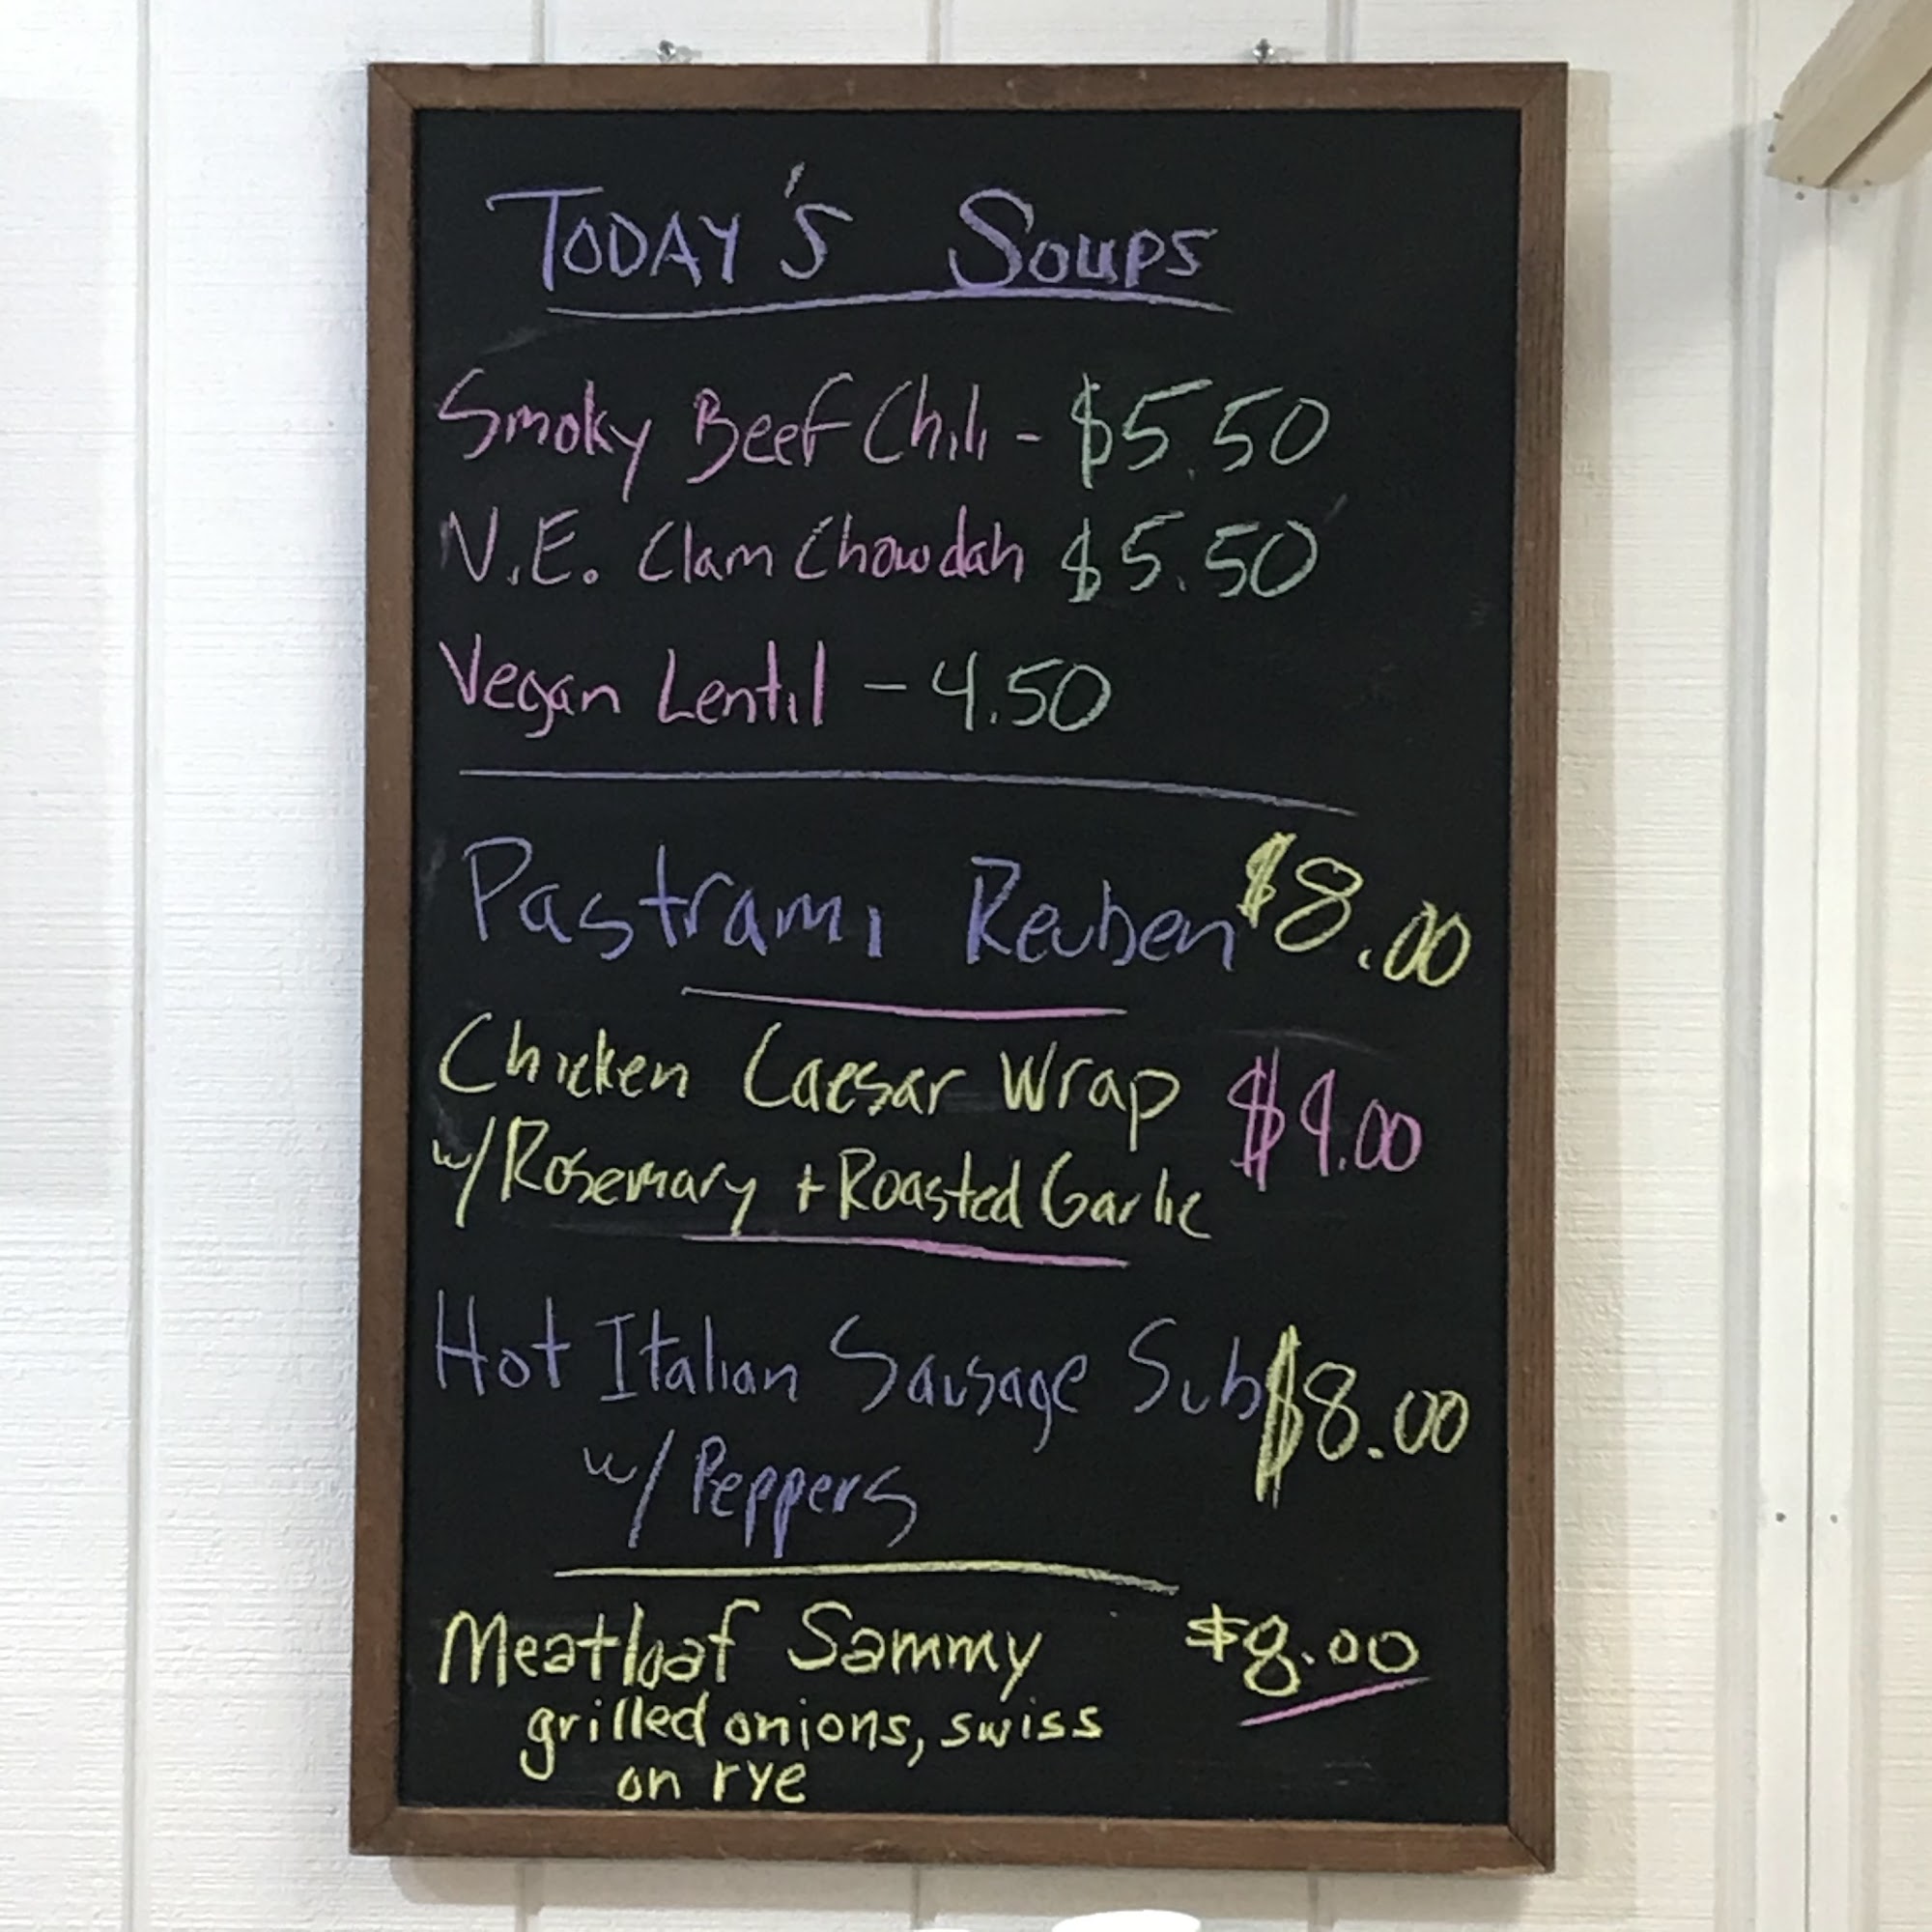 TODAY'S SOUPS
Smoky Beef Chili - $5.50
N.E. Clam Chowdah $5.50
Vegan Lentil - 4.50
Pastrami Reuben $8.00
Chicken Caesar Wrap $9.00
w/Rosemary + Roasted Garlic
Hot Italian Sausage Sub $8.00
w/ Peppers
Meatloaf Sammy $8.00
grilled onions, swiss
on rye